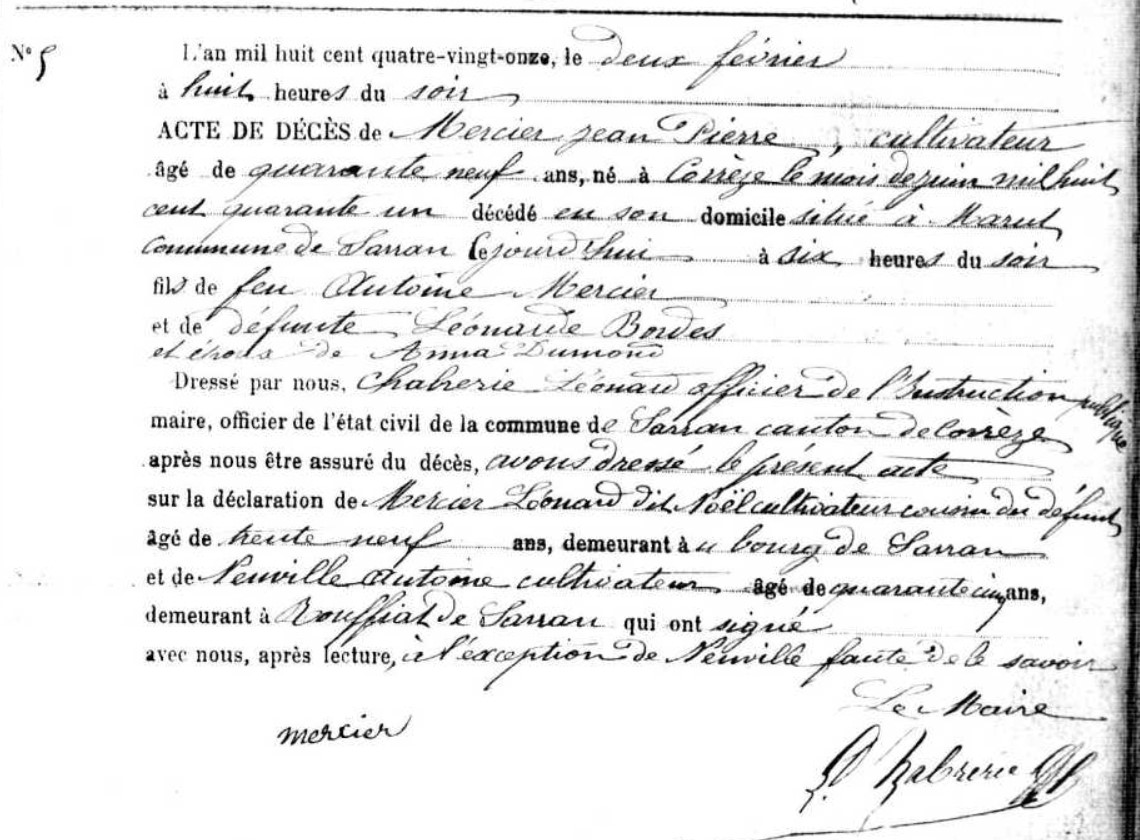 N° 5
L'an mil huit cent quatre-vingt-onze, le deux février
à huit heures du soir
ACTE DE DÉCÈS de Mercier Jean Pierre, cultivateur
âgé de quarante neuf ans, né à Corrèze le mois de juin mil huit
cent quarante un décédé en son domicile situé à
commune de Sarran cejourd'hui à six heures du soir
fils de feu Antoine Mercier
et de défunte Léonarde Bordes
et époux de Anna Dumond
Dressé par nous, Chabrerie Léonard officier de l'Instruction publique
maire, officier de l'état civil de la commune de Sarran canton de Corrèze
après nous être assuré du décès, avons dressé le présent acte
sur la déclaration de Mercier Léonard dit Noël cultivateur cousin du défunt
âgé de trente neuf ans, demeurant au bourg de Sarran
et de Neuville Antoine cultivateur âgé de quarante cinq ans,
demeurant à Rouffiat de Sarran qui ont signé
avec nous, après lecture, à l'exception de Neuville faute de le savoir
Le Maire
mercier
Chabrerie